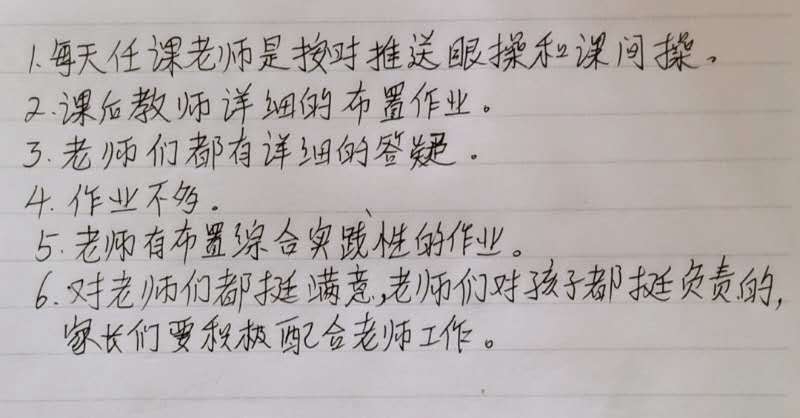 1.每天任课老师是按对推送眼操和课间操。
2.课后教师详细的布置作业。
3.老师们都有详细的答疑。
4.作业不多。
5.老师有布置综合实践、性的作业。
6.对老师们都挺满意,老师们对孩子都挺负责的,
家长们要积极配合老师工作。